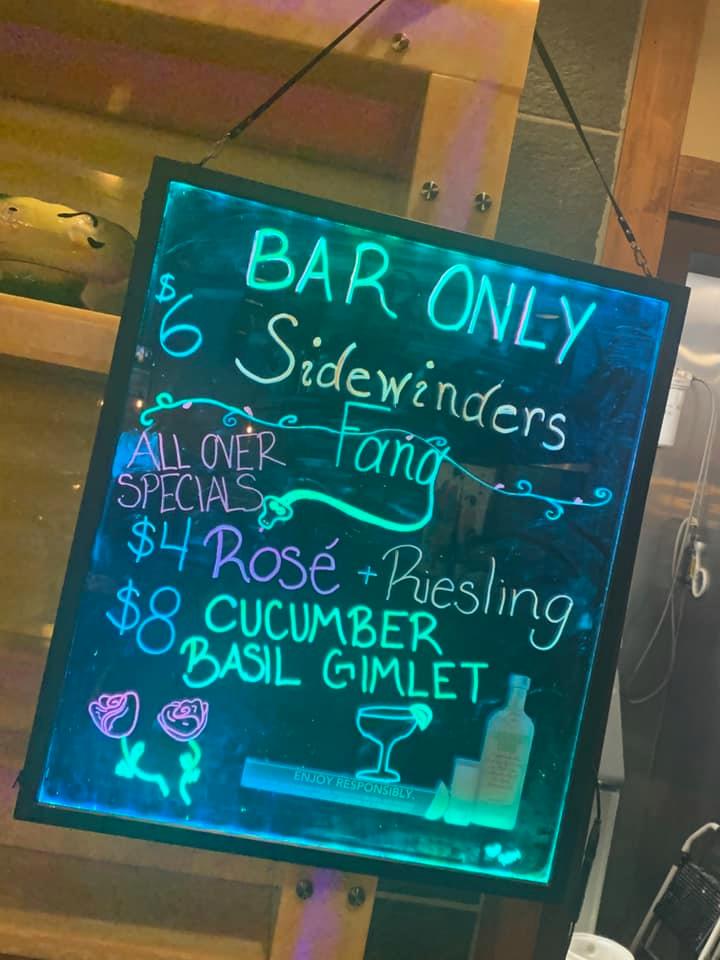 BAR ONLY
$6 Sidewinders
Fang
ALL OVER
SPECIALS
$4 Rosé + Riesling
$8 CUCUMBER
BASIL GIMLET
ENJOY RESPONSIBLY.